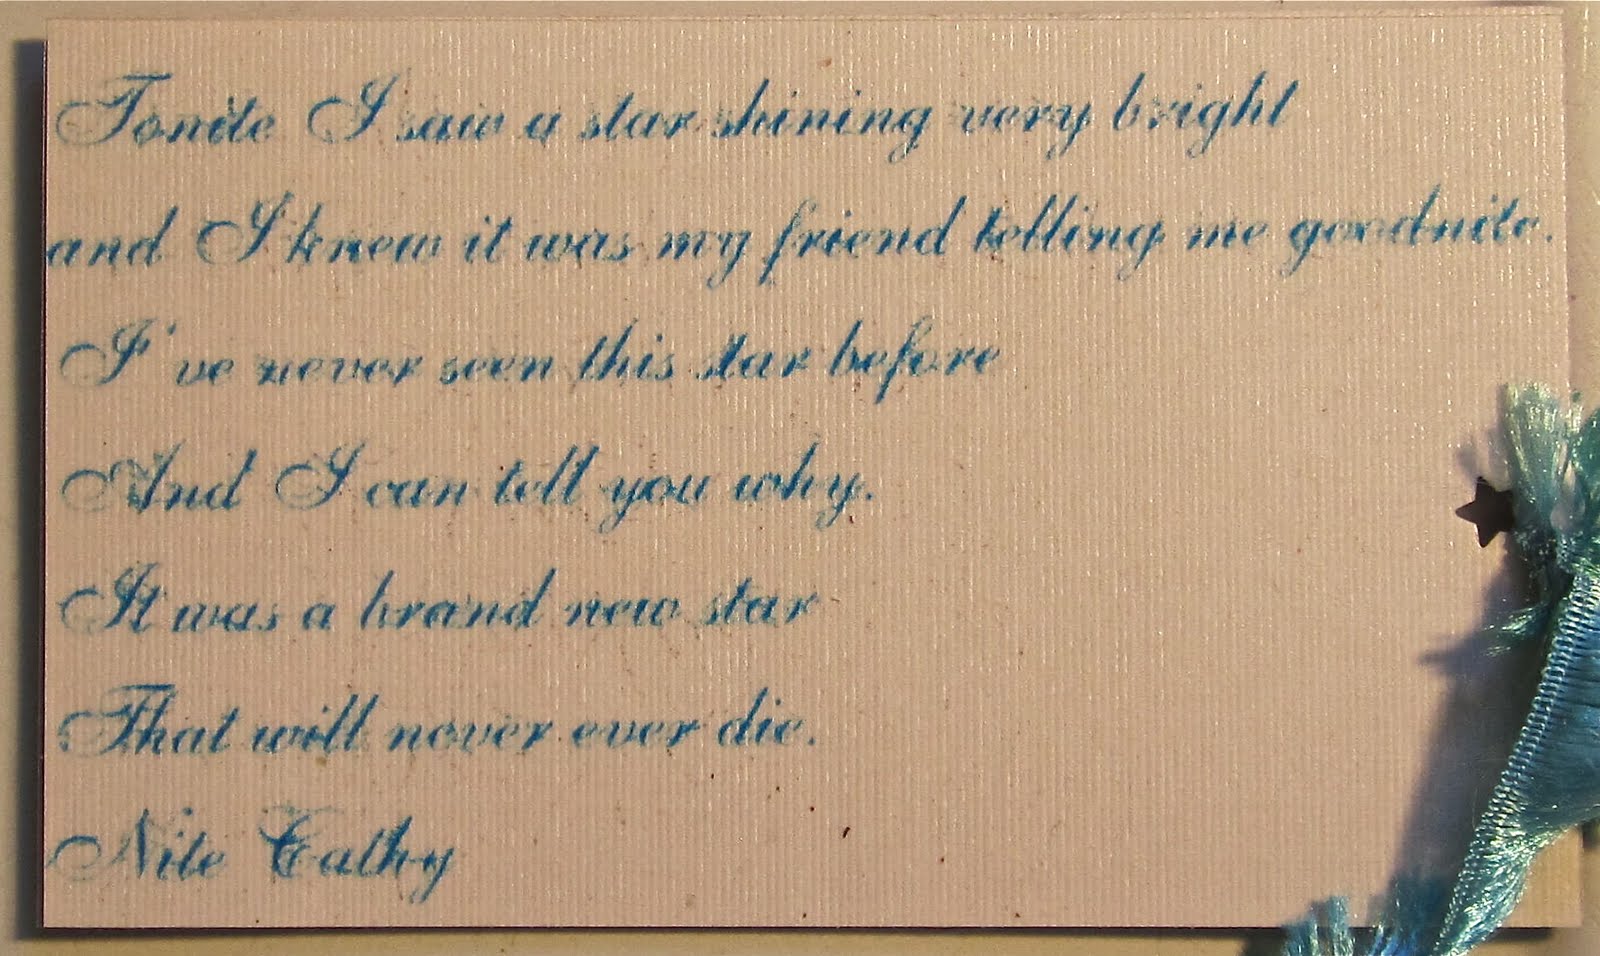 Tonite I saw a star shining very bright
and I knew it was my friend telling me goodnite.
I've never seen this star before
And I can tell you why.
It was a brand new star
That will never ever die.
Nite Cathy